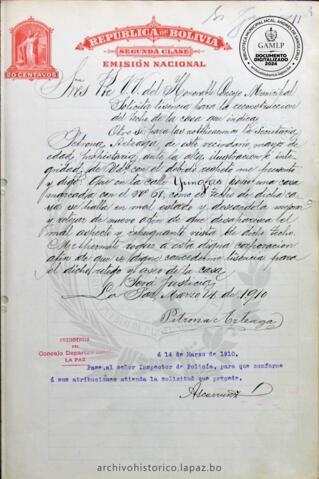 REPÚBLICA DE BOLIVIA
SEGUNDA CLASE
EMISIÓN NACIONAL
20 CENTAVOS
GAMLP
DOCUMENTO
DIGITALIZADO
2024
del Honorable Municipal
Solicita licencia para la reconstruccion
del techo de la casa que indica,
Otro sí para las notificaciones la Secretaría
Petrona Arteaga, de este vecindario, mayor de
edad, propietaria, ante la alta ilustracion é inte
gridad de Ud. con el debido respeto me presento
y digo: Que en la calle poseo una casa
marcada con el Nº el techo de dicha ca
sa se halla en mal estado i
y retejar de nuevo afin de que desaparesca el
mal aspecto y repugnante vista de dicho techo.
Me permito rogar a esta digna corporacion
afin de que se digne concederme licencia para
el dicho retejo i aseo de la casa.
Será Justicia
La Paz, Marzo 14 de 1910
Petrona Arteaga
PRESIDENCIA
DEL
Concejo Departamental
LA PAZ
á 14 de Marzo de 1910.
Pase al señor Inspector de Policía, para que conforme
á sus atribuciones atienda la solicitud que precede.
Ascarrunz
archivohistorico.lapaz.bo